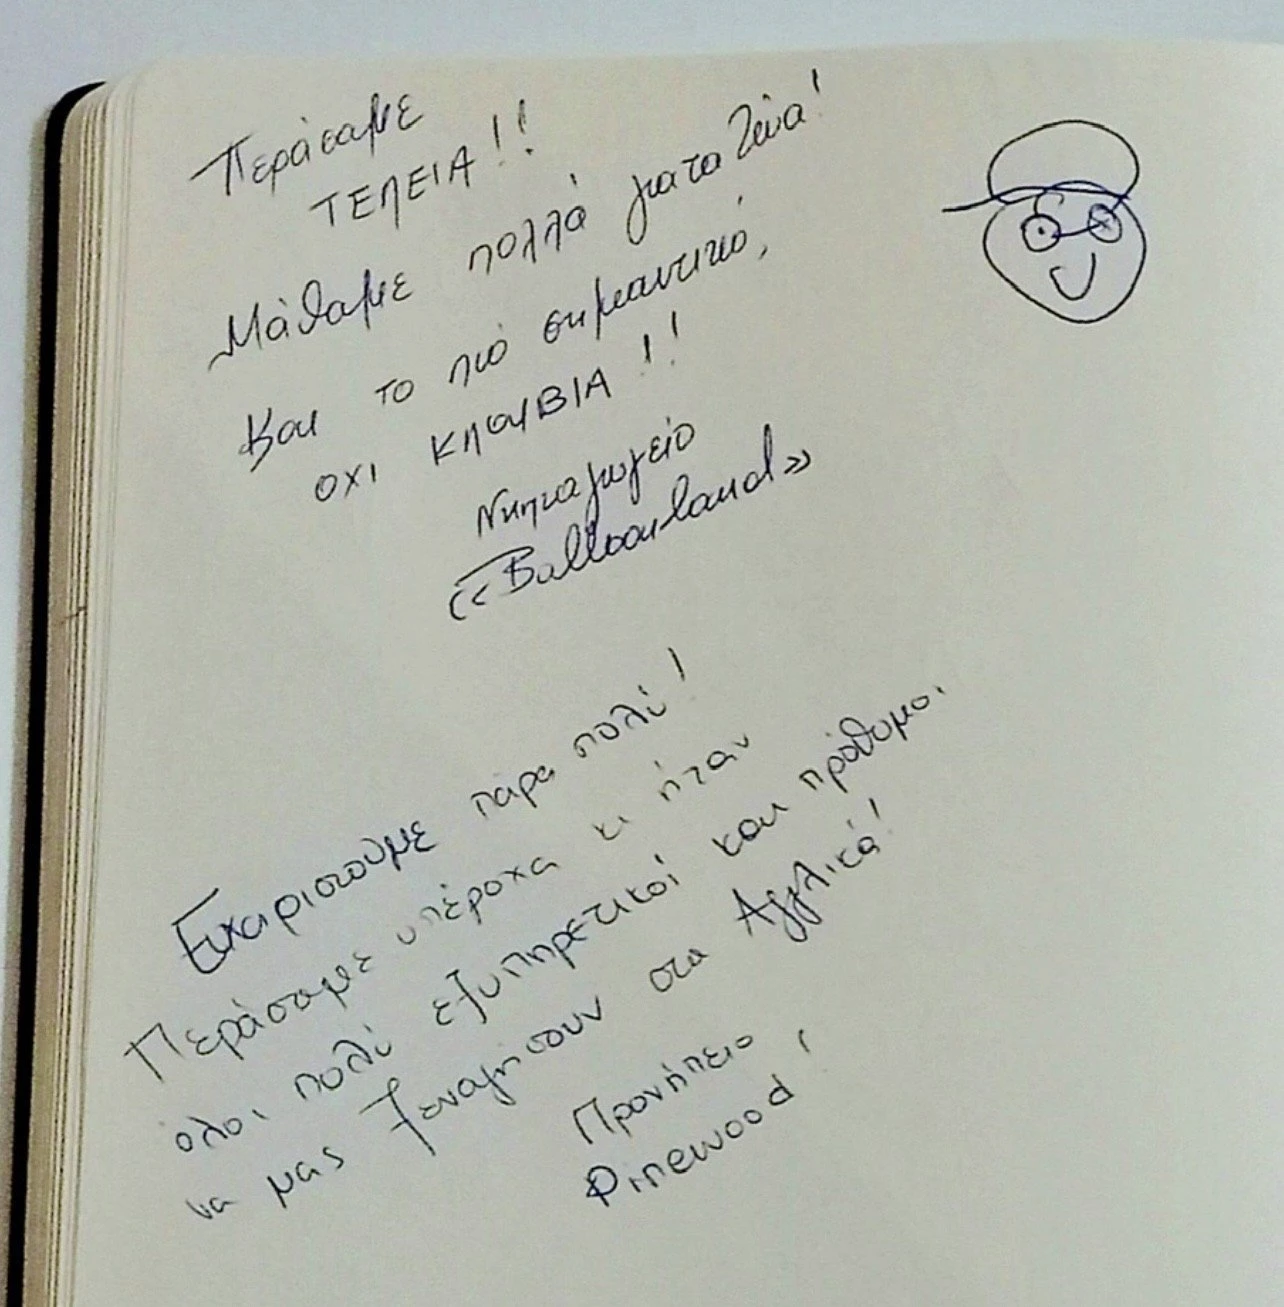 Περάσαμε
ΤΕΛΕΙΑ!!
Μάθαμε πολλά για τα ζώα!
Και το πιό σημαντικό,
ΟΧΙ ΚΛΟΥΒΙΑ!!
Νηπιαγωγείο
«Balloonland»
Ευχαριστούμε πάρα πολύ!
Περάσαμε υπέροχα κι ήταν
όλοι πολύ εξυπηρετικοί και πρόθυμοι
να μας ξεναγήσουν στα Αγγλικά!
Προνήπειο
Pinewood!